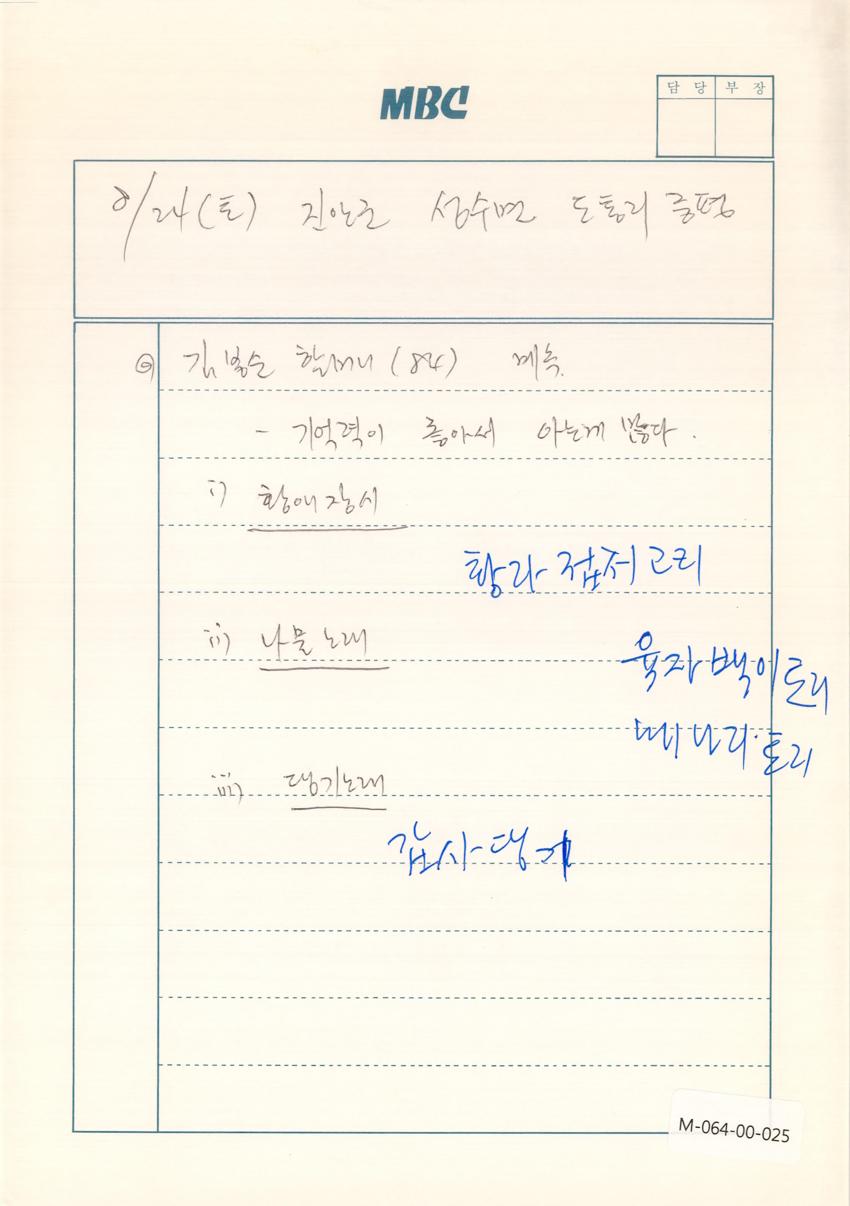 MBC
담 당 부 장
8/24(토) 진안군 성수면 도통리 중평
김봉순 할머니 (84)
- 기억력이 좋아서 아는게 많다.
i) 황애장시
황라 접저고리
ii) 나물노래
육자백이토리
메나리·토리
iii) 댕기노래
갑사댕기
M-064-00-025